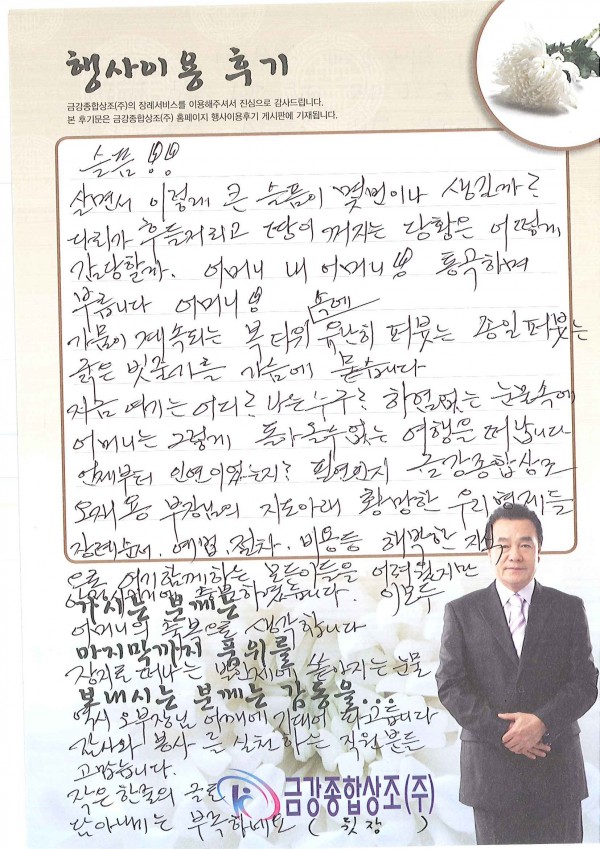 행사이용 후기
금강종합상조(주)의 장례서비스를 이용해주셔서 진심으로 감사드립니다.
본 후기문은 금강종합상조(주) 홈페이지 행사이용후기 게시판에 기재됩니다.
슬픔!!
살면서 이렇게 큰 슬픔이 몇번이나 생길까?
다리가 후들거리고 땅이 꺼지는 당황은 어떻게
감당할까. 어머니 내 어머니!! 통곡하며
부릅니다 어머니!!
가뭄이 계속되는 복더위 속에 유난히 퍼붓는 종일 퍼붓는
굵은 빗줄기를 가슴에 묻습니다
지금 여기는 어디? 나는 누구? 하염없는 눈물속에
어머니는 그렇게 돌아올수없는 여행을 떠납니다
언제부터 인연이었는지? 필연인지 금강종합상조
오재용 부장님의 지도아래 황망한 우리형제들
장례순서. 예법. 절차. 비용등 해박한 지식
으로 여기함께하는 모든이들을 어려웠지만
하였습니다. 이모두
가시는 분께는
어머니의 축복으로 생각합니다
마지막까지 품위를
장지로 떠나는 쏟아지는 눈물
보내시는 분께는 감동을...
역시 오부장님 어깨에 기대어 파고듭니다
감사와 봉사를 실천하는 직원분들
고맙습니다.
작은 한줄의 글로
담아내기는 부족하네요 (뒷장)
금강종합상조(주)